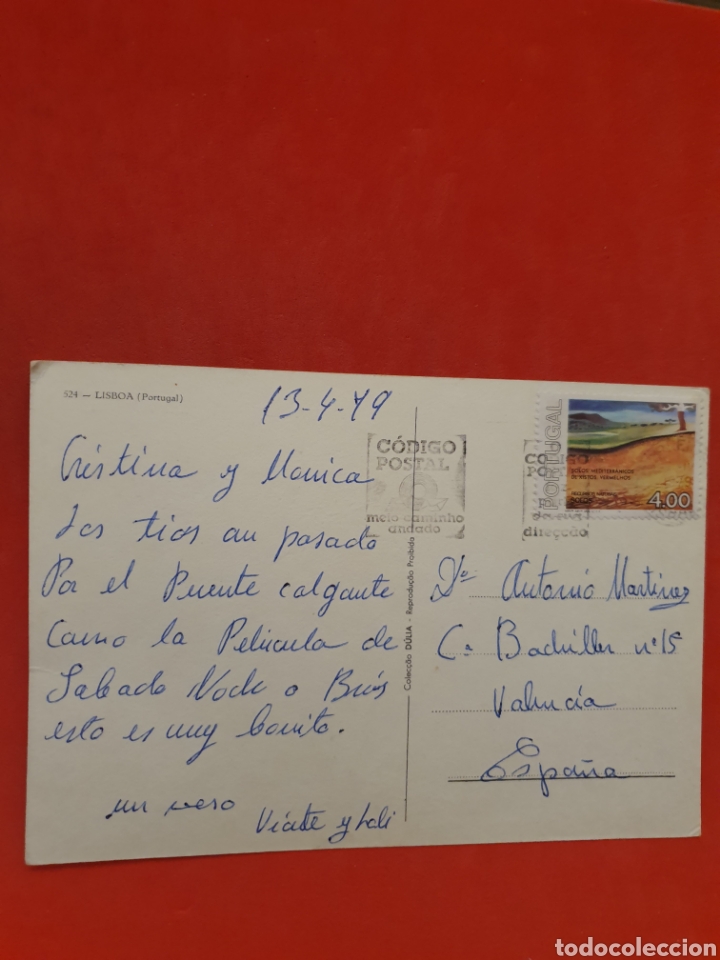 524 — LISBOA (Portugal)
13-4-79
Cristina y Monica
Los tios an pasado
Por el Puente colgante
Como la Pelicula de
Sabado Noche o
esto es muy bonito.
un veso
Vicente y Loli
Colecção DÚLIA - Reprodução Proibida
CÓDIGO
POSTAL
meio caminho
andado
CÓDIGO
direcção
PORTUGAL
SOLOS MEDITERRÂNICOS
DE XISTOS VERMELHOS
4.00
Dn Antonio Martinez
C. Bachiller nº 15
Valencia
España
todocoleccion